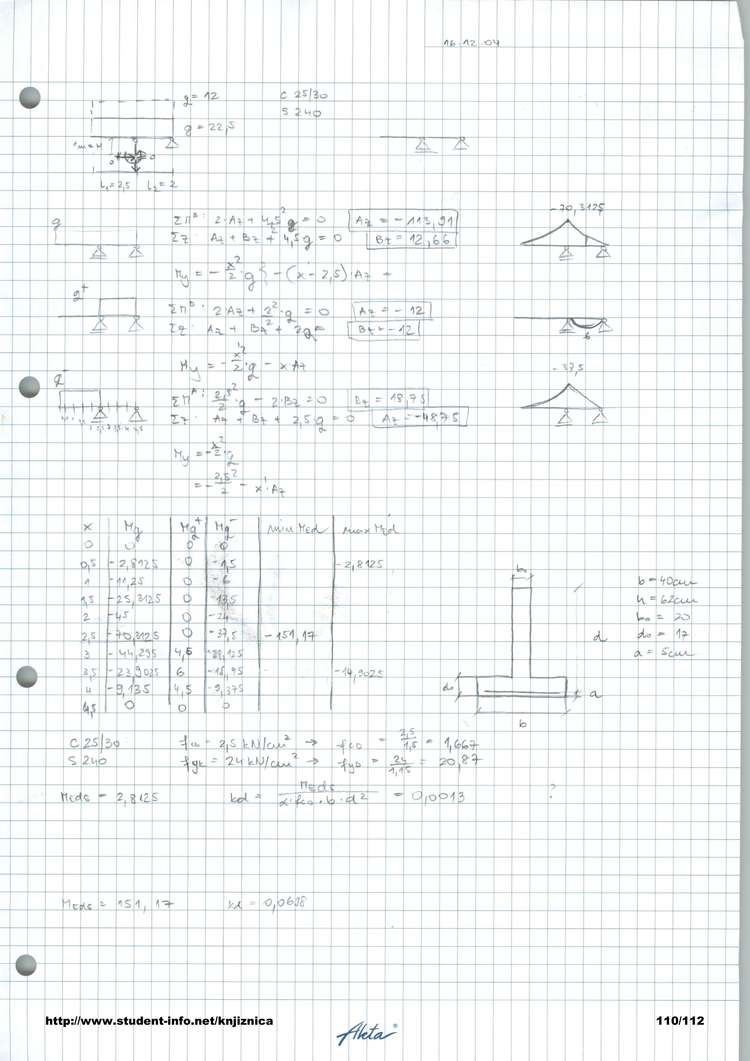 16.12.04
q = 12
C 25/30
S 240
g = 22,5
L₁ = 2,5 L₂ = 2
g
ΣMᴮ: 2·Az + 4,5²/2 g = 0 Az = -113,91
Σz: Az + Bz + 4,5g = 0 Bz = 12,66
-70,3125
My = -x²/2·g - (x-2,5)·Az
q⁺
ΣMᴮ: 2Az + 2²/2·q = 0 Az = -12
Σz: Az + Bz + 2q = Bz = -12
6
My = -x²/2·q - xAz
q⁻
ΣMᴬ: 2,5²/2·q - 2·Bz = 0 Bz = 18,75
Σz: Az + Bz + 2,5·q = 0 Az = -48,75
-37,5
My = -x²/2·q
= -2,5²/2 - x'·Az
x Mg Mq⁺ Mq⁻ min MEd max MEd
0 0 0 0
0,5 -2,8125 0 -1,5 -2,8125
1 -11,25 0 -6
1,5 -25,3125 0 -13,5
2 -45 0 -24
2,5 -70,3125 0 -37,5 -151,17
3 -44,295 4,5 -28,125
3,5 -23,9025 6 -18,75 -14,9025
4 -9,135 4,5 -9,375
4,5 0 0 0
b₀
d
d₀
a
b
b = 40cm
h = 62cm
b₀ = 20
d₀ = 17
a = 5cm
C 25/30 fck = 2,5 kN/cm² → fcd = 2,5/1,5 = 1,667
S 240 fyk = 24 kN/cm² → fyd = 24/1,15 = 20,87
MEds = 2,8125 kd = MEds/α·fcd·b·d² = 0,0013 ?
MEds = 151,17 kd = 0,0698
http://www.student-info.net/knjiznica
Akta
110/112